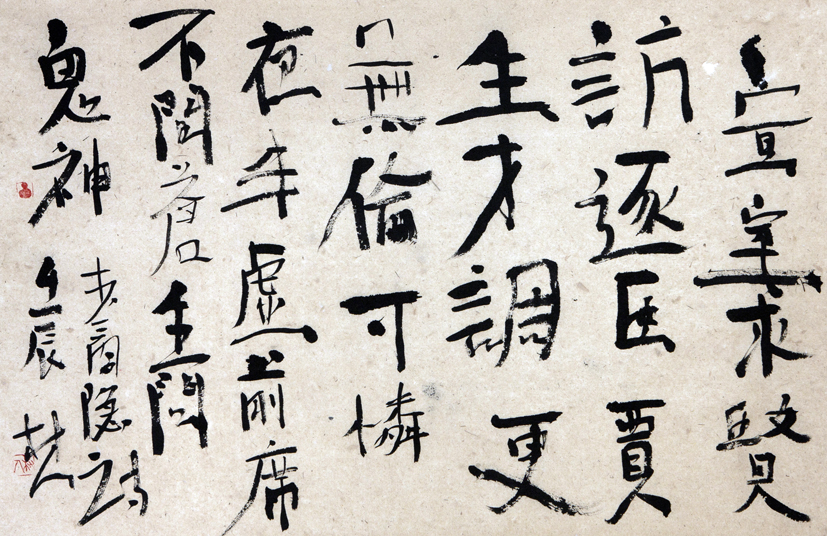 宣室求賢
訪逐臣賈
生才調更
無倫可憐
夜半虛前席
不問蒼生問
鬼神
李商隐詩
壬辰